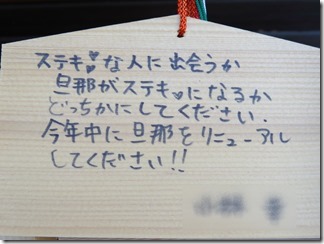 ステキ♥な人に出会うか
旦那がステキ♥になるか
どっちかにしてください.
今年中に旦那をリニューアル
してください!!